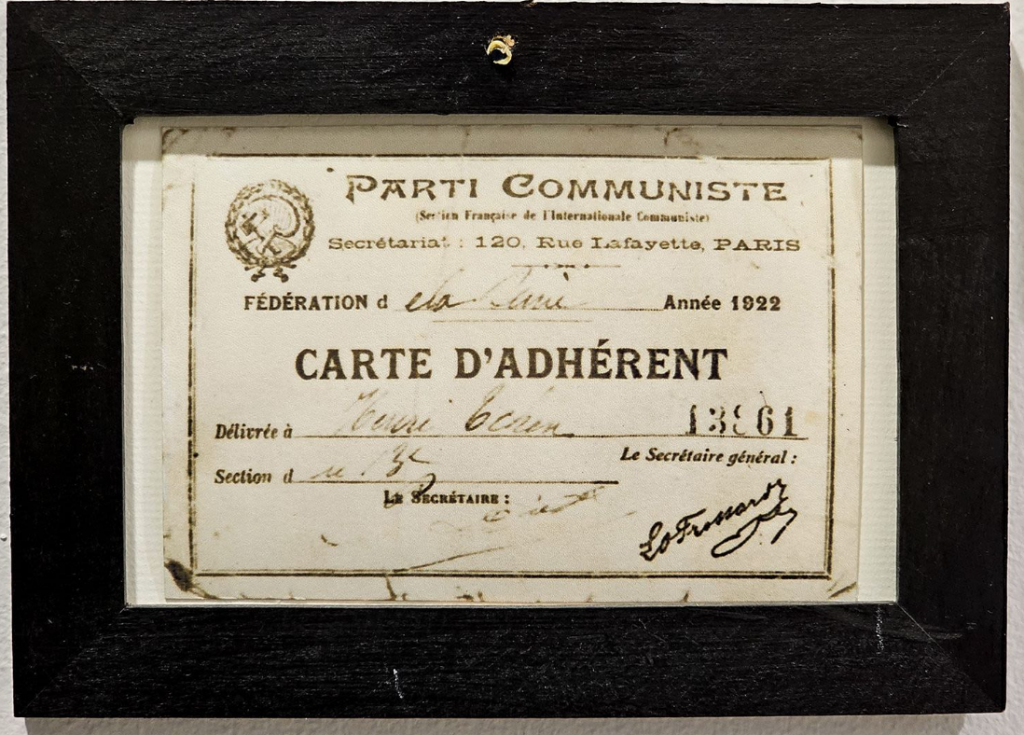 PARTI COMMUNISTE
(Section Française de l'Internationale Communiste)
Secrétariat : 120, Rue Lafayette, PARIS
FÉDÉRATION d e la Seine Année 1922
CARTE D'ADHÉRENT
Délivrée à Henri 13961
Section d u 13e Le Secrétaire général :
LE SECRÉTAIRE :
LO Frossard